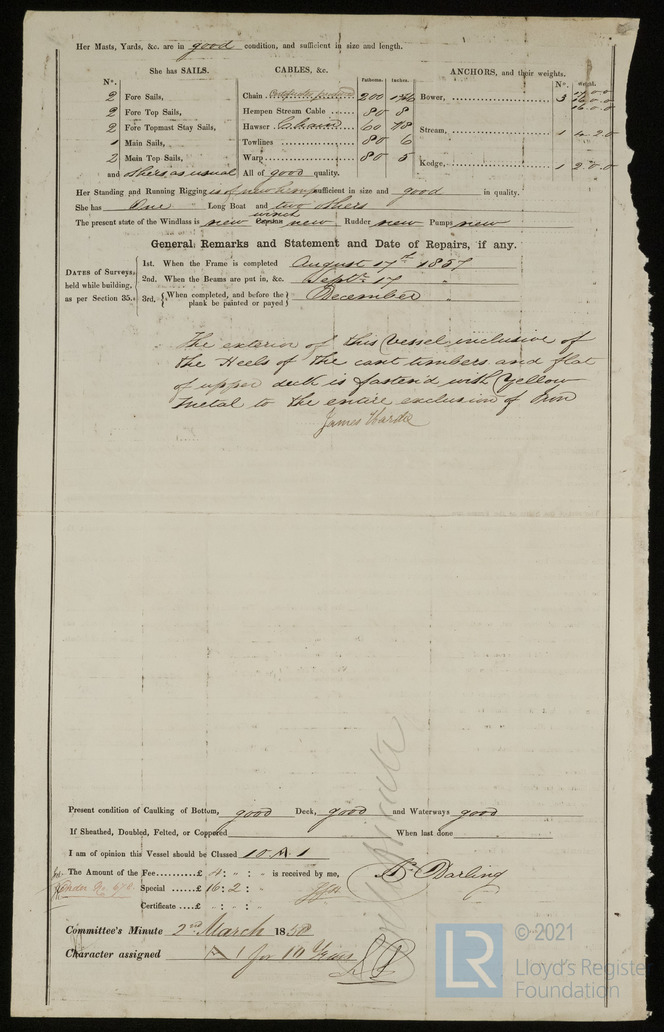 Her Masts, Yards, &c. are in good condition, and sufficient in size and length.
She has SAILS.
CABLES, &c.
ANCHORS, and their weights.
N°.
Fathoms. Inches.
N°. Weight.
2 Fore Sails,
2 Fore Top Sails,
2 Fore Topmast Stay Sails,
1 Main Sails,
2 Main Top Sails,
and others as usual
Chain 200
Hempen Stream Cable 80 8
Hawser Chain 60
Towlines 80 6
Warp 80 5
All of good quality.
Bower, 3
Stream, 1 4.2.0
Kedge, 1 2.0.0
Her Standing and Running Rigging is of new hemp sufficient in size and good in quality.
She has One Long Boat and two others
The present state of the Windlass is new winch Capstan new Rudder new Pumps new
General Remarks and Statement and Date of Repairs, if any.
DATES of Surveys held while building, as per Section 35.
1st. When the Frame is completed August 17th 1857
2nd. When the Beams are put in, &c. Septr 17 "
3rd. When completed, and before the plank be painted or payed December "
The exterior of this Vessel inclusive of
the Heels of the cant timbers and flat
of upper deck is fasten'd with Yellow
Metal to the entire exclusion of Iron
James
Present condition of Caulking of Bottom, good Deck, good and Waterways good
If Sheathed, Doubled, Felted, or Coppered When last done
I am of opinion this Vessel should be Classed 10. A. 1
The Amount of the Fee £ 4 : " : " is received by me,
Special £ 16 : 2 :
Certificate £ " : " :
Darling
Committee's Minute 2nd March 1858
Character assigned A 1 for 10 Years
LR
© 2021
Lloyd's Register
Foundation